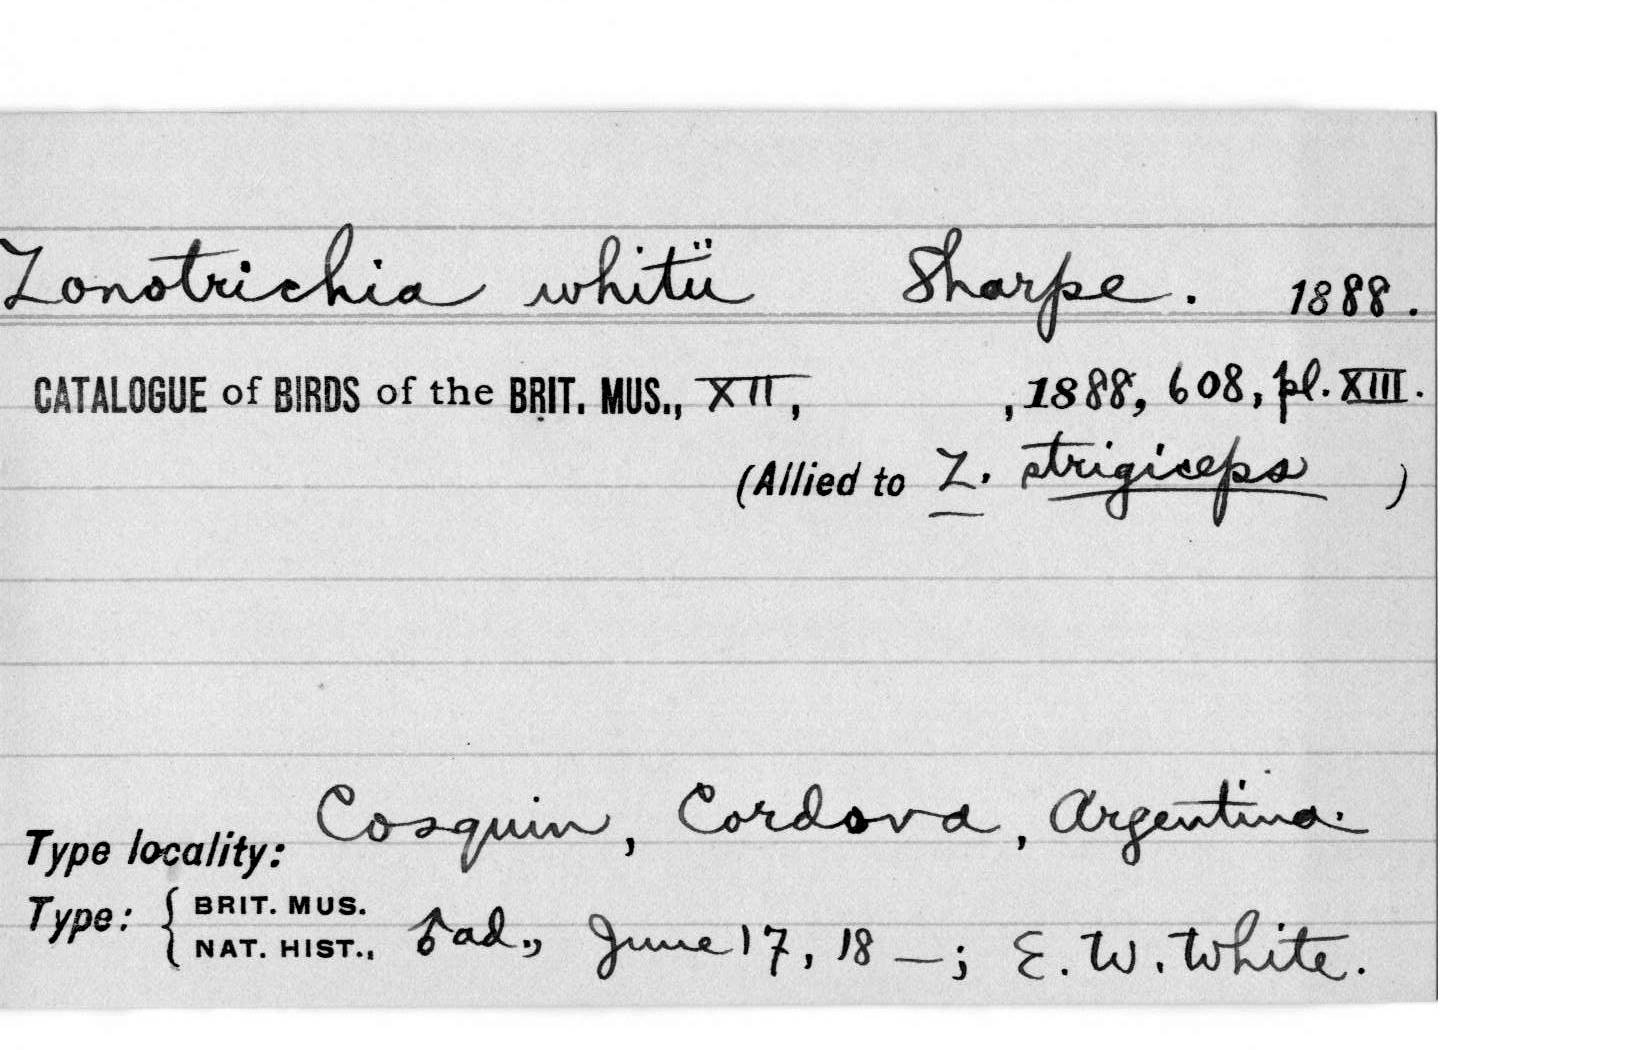 Zonotrichia whitii Sharpe. 1888.
CATALOGUE of BIRDS of the BRIT. MUS., XII, , 1888, 608, pl. XIII.
(Allied to Z. strigiceps )
Type locality: Cosquin, Cordova, Argentina.
Type: { BRIT. MUS.
NAT. HIST., ♂ ad., June 17, 18—; E. W. White.